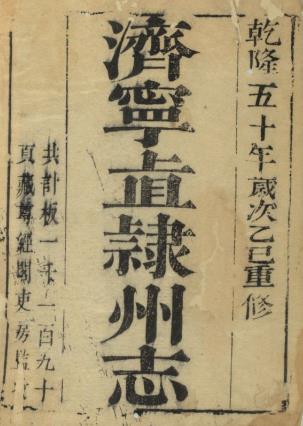 乾隆五十年歲次乙巳重修
濟寧直隸州志
共計板一千一百九十
頁藏尊經閣吏房監